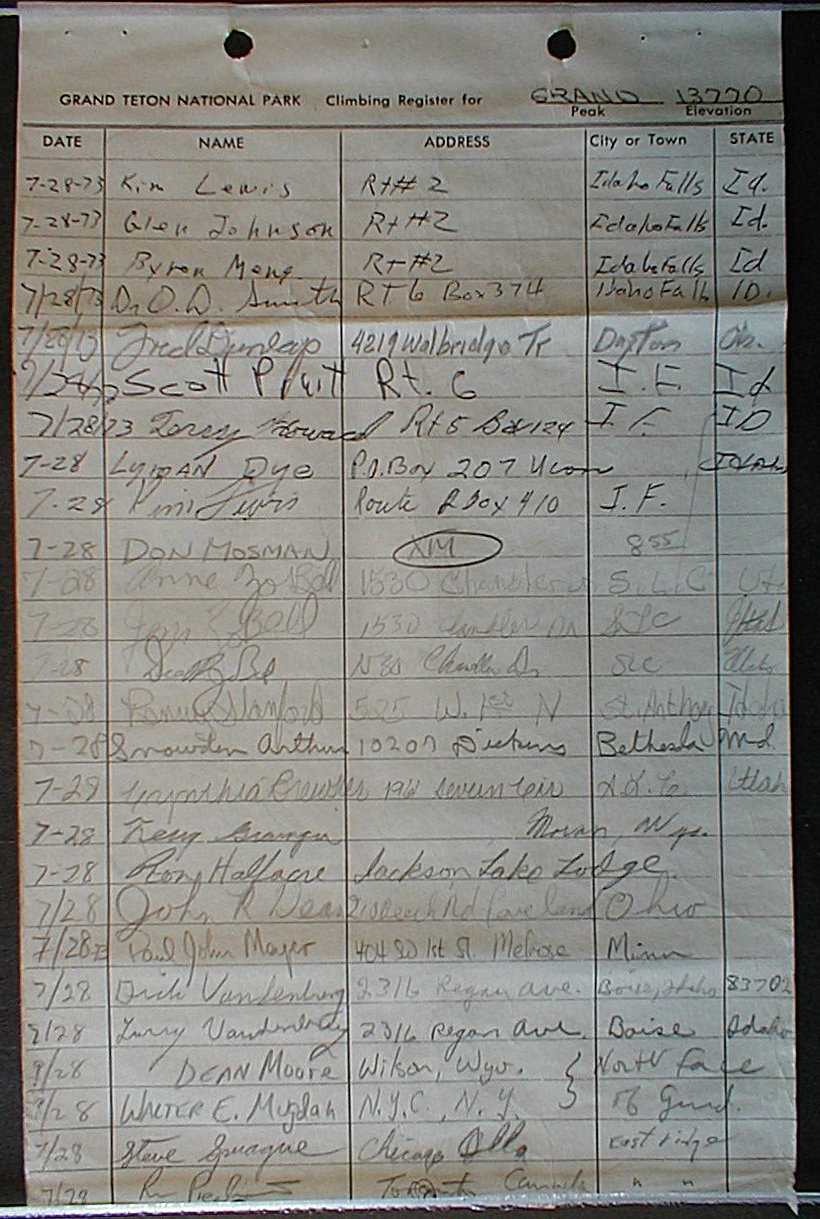 GRAND TETON NATIONAL PARK Climbing Register for GRAND 13770
Peak Elevation
DATE NAME ADDRESS City or Town STATE
7-28-73 Kim Lewis Rt# 2 Idaho Falls Id.
7-28-73 Glen Johnson Rt #2 Idaho Falls Id.
7-28-73 Byron Meng Rt #2 Idaho Falls Id
7/28/73 Dr O.D. Smith RT 6 Box 374 Idaho Falls ID.
7/28/73 Fred Dunlap 4219 Walbridge Tr Dayton Oh.
7/28/73 Scott Pruitt Rt. 6 I.F. Id
7/28/73 Jerry Howard Rt 5 Box 124 I F. ID
7-28 LYMAN Dye P.O. Box 207 Ucon Idaho
7-28 Route 2 Box 410 I.F.
7-28 DON MOSMAN XM 855
7-28 Anne 1530 S.L.C Ut
7-28 Bell 1530 Chandler Dr SLC Utah
7-28 1530 Chandler Dr SLC Utah
7-28 Stanford 525 W. 1st N St. Anthony Idaho
7-28 Snowden Arthur 10207 Dickens Bethesda Md.
7-28 Cynthia Brewster S.L.C. Utah
7-28 Moran, Wyo.
7-28 Ron Halfacre Jackson Lake Lodge.
7/28 John R Dean Loveland Ohio
7/28 73 Paul John Mayer 404 SO 1st St. Melrose Minn
7/28 Dick Vandenberg 2316 Regan ave. Boise, Idaho 83702
7/28 Larry Vandenberg 2316 Regan Ave. Boise Idaho
7/28 DEAN Moore Wilson, Wyo. North face
7/28 WALTER E. Mugdan N.Y.C., N.Y. of Grand.
7/28 Steve Sprague Chicago Ills East ridge
7/28 Toronto Canada " "